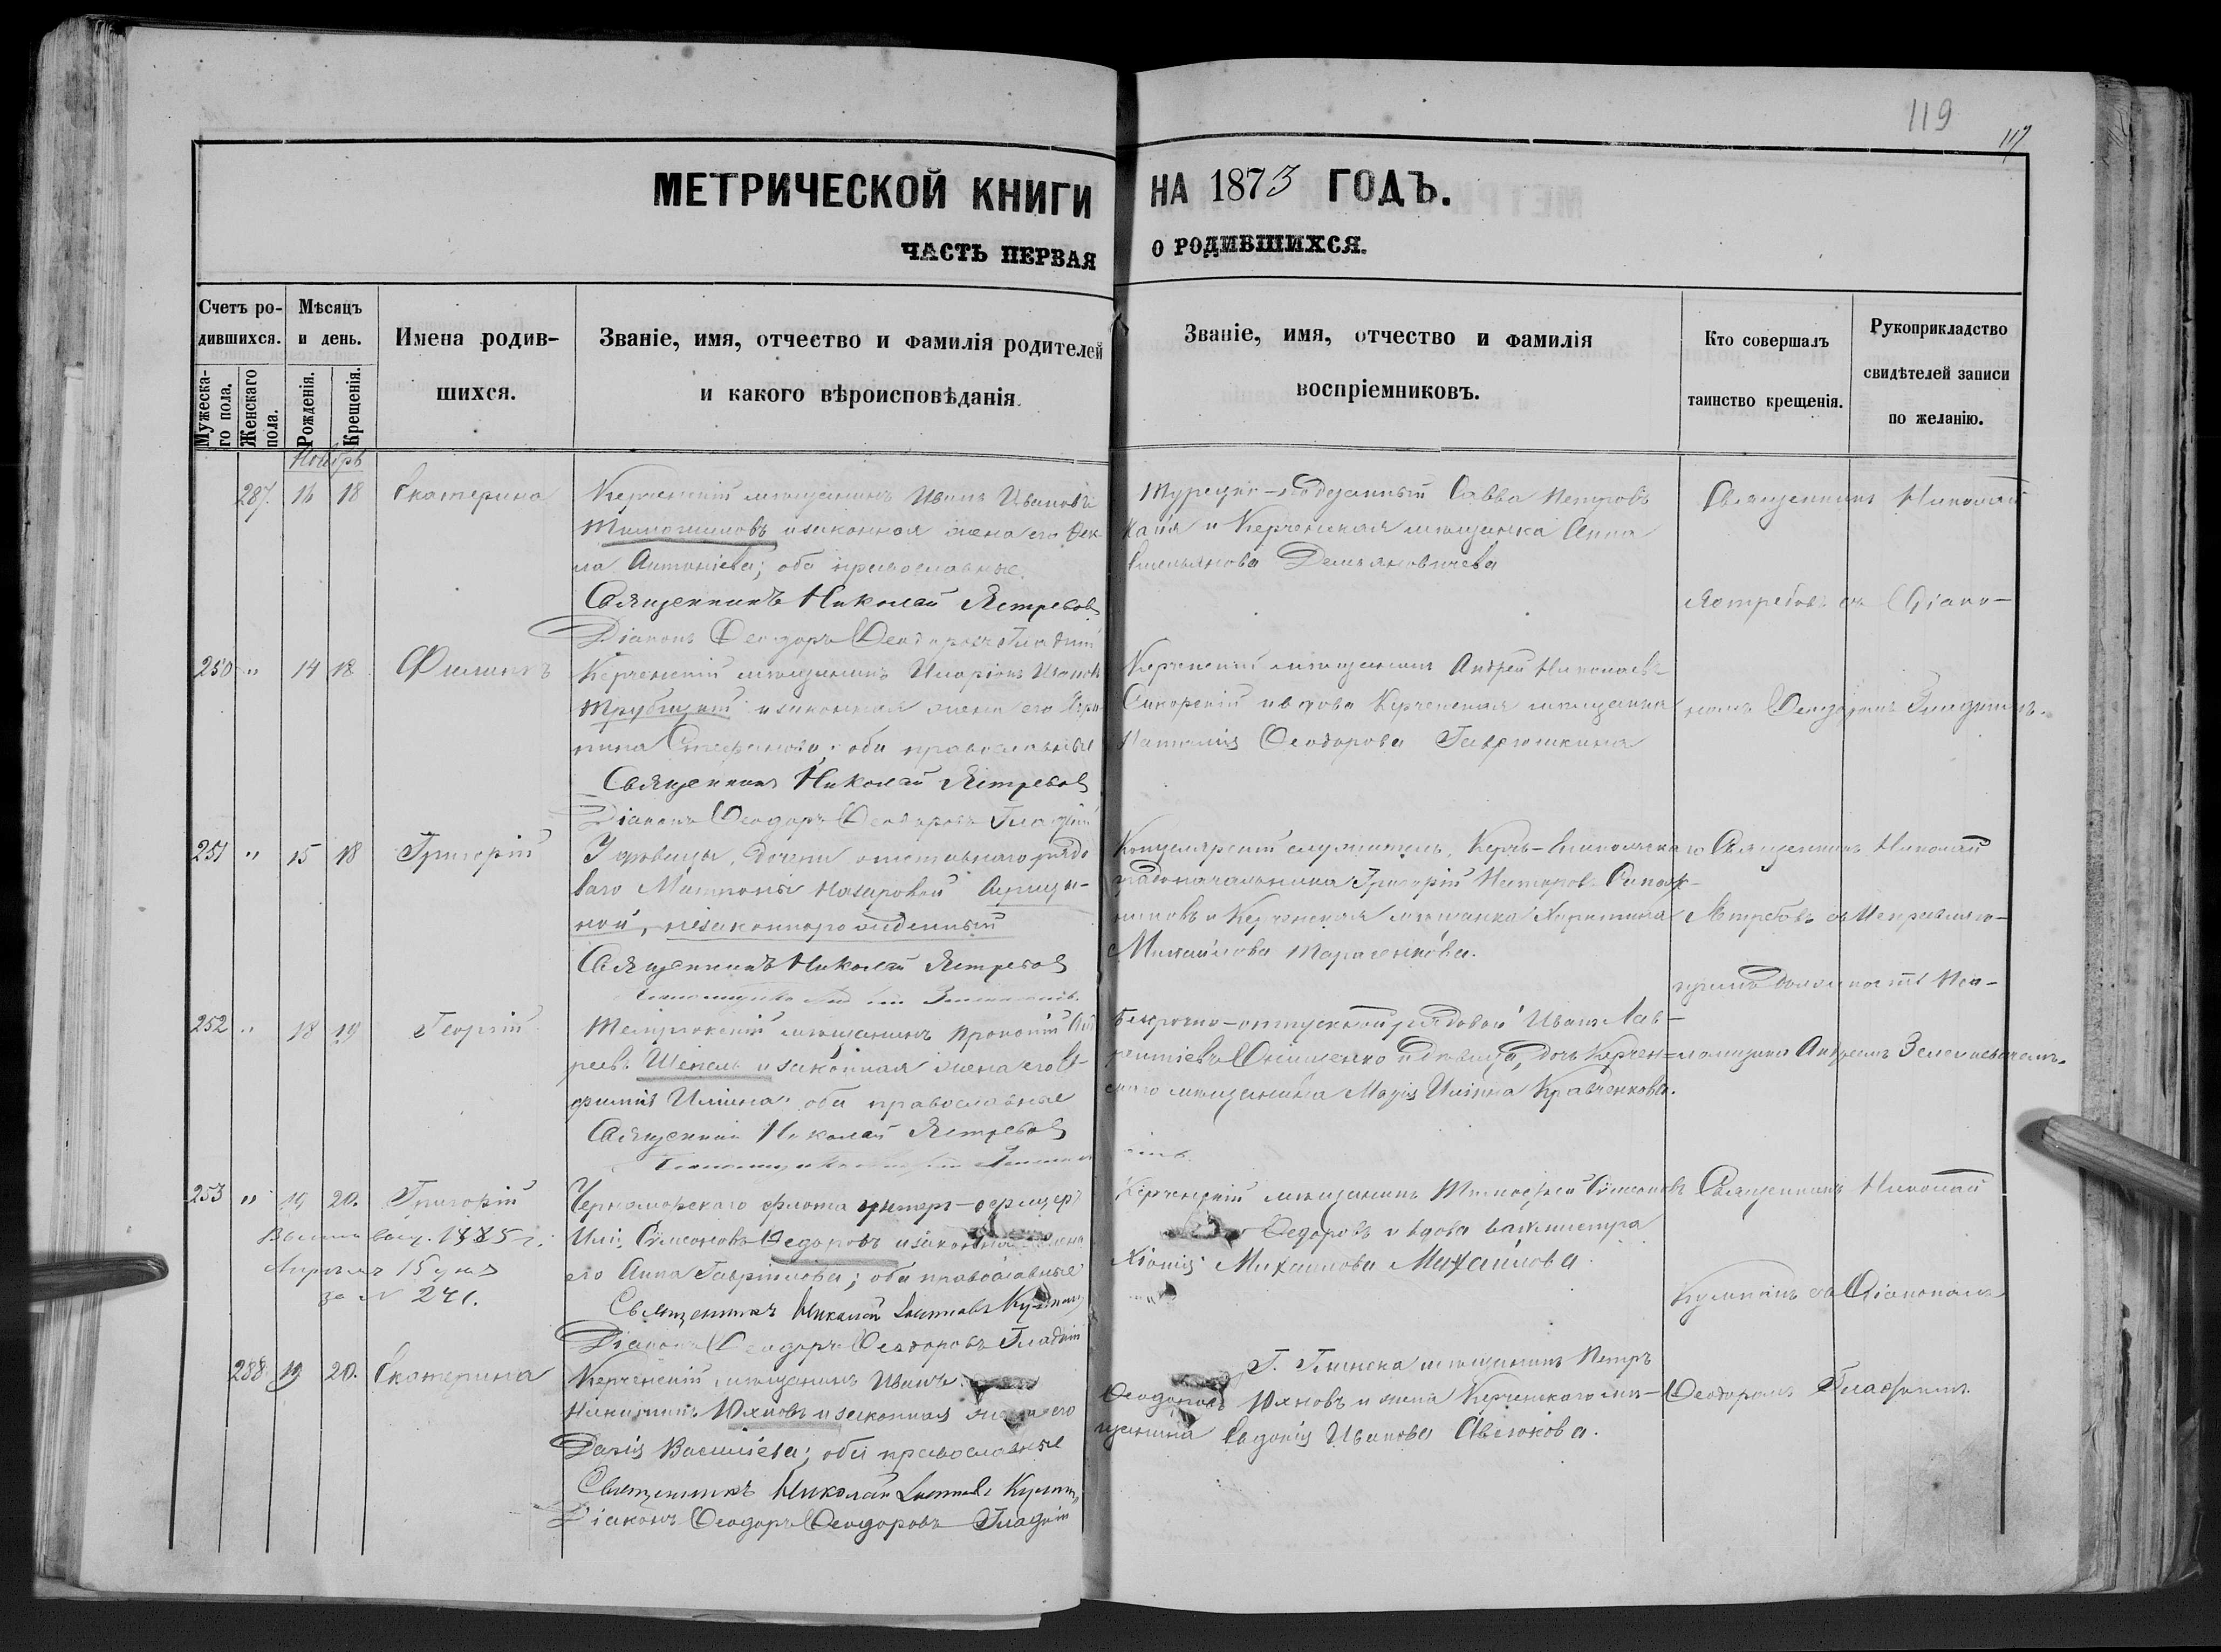 119
117
МЕТРИЧЕСКОЙ КНИГИ НА 1873 ГОДЪ.
ЧАСТЬ ПЕРВАЯ О РОДИВШИХСЯ.
Счетъ ро-
дившихся.
Мужеска-
го пола.
Женскаго
пола.
Мѣсяцъ
и день.
Рожденія.
Крещенія.
Имена родив-
шихся.
Званіе, имя, отчество и фамилія родителей
и какого вѣроисповѣданія.
Званіе, имя, отчество и фамилія
воспріемниковъ.
Кто совершалъ
таинство крещенія.
Рукоприкладство
свидѣтелей записи
по желанію.
Ноябрь
287. 16 18 Екатерина
Керченскій мѣщанинъ Иванъ Ивановъ
и законная жена его Фек-
ла Антоніева; оба православные.
Священникъ Николай Ястребов
Діаконъ Ѳеодоръ Ѳеодоровъ Гладкій
Турецко-подданный Савва Петровъ
и Керченская мѣщанка Анна
Емельянова Демьяновичева
Священникъ Николай
Ястребовъ съ Діако-
номъ Ѳеодоромъ Гладкимъ.
250 " 14 18 Филиппъ
Керченскій мѣщанинъ Иларіонъ Иванов
Трубицкій и законная жена его Агри-
пина Стефанова; оба православные
Священникъ Николай Ястребов
Діаконъ Ѳеодоръ Ѳеодоровъ Гладкій
Керченскій мѣщанинъ Андрей Николаевъ
Сикорскій и вдова Керченская мѣщанка
Наталія Ѳеодорова Гаврюшкина
251 " 15 18 Григорій
У дѣвицы, дочери отставнаго рядо
ваго Матроны Назаровой
ной, незаконнорожденный
Священникъ Николай Ястребов
Канцелярскій служитель, Керчь-Еникольскаго
градоначальника Григорій
и Керченская мѣщанка Христина
Михайлова Тарасенкова.
Священникъ Николай
Ястребовъ съ Исправляю-
щимъ должность Пса-
ломщика Андреемъ
252 " 18 19 Георгій
Темрюкскій мѣщанинъ Прокопій Анд
реевъ Шепель и законная жена его Е-
фимія Ильина; оба православные
Священникъ Николай Ястребов
Безсрочно-отпускной рядовой Иванъ Лав-
рентіевъ Онищенко и дѣвица, дочь Керчен-
скаго мѣщанина Марія Ильина Кравченкова.
253 " 19 20. Григорій
1885 г.
Апрѣля 15 дня
за № 241.
Черноморскаго флота унтеръ-офицеръ
Илія Симеоновъ Ѳедоровъ и законная жена
его Анна Гавріилова; оба православные
Священникъ Николай
Діаконъ Ѳеодоръ Ѳеодоровъ Гладкій
Керченскій мѣщанинъ Тимоѳей Симеоновъ
Ѳедоровъ и вдова
Хіонія Михаилова Михайлова
Священникъ Николай
съ Діакономъ
Ѳеодоромъ Гладкимъ.
288 19 20. Екатерина
Керченскій мѣщанинъ Иванъ
Никитинъ Юхновъ и законная жена его
Дарія Васильева; оба православные
Священникъ Николай
Діаконъ Ѳеодоръ Ѳеодоровъ Гладкій
Г. мѣщанинъ Петръ
Ѳеодоровъ Юхновъ и жена Керченскаго мѣ-
щанина Евдокія Иванова